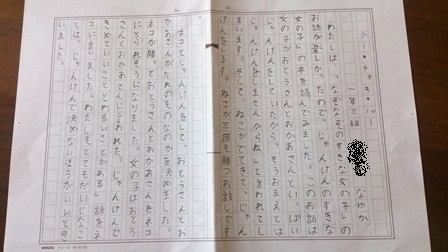 グー・チョキ・パー
一年三組　なゆか
わたしは、「なぞなぞのすきな女の子」の
お話が楽しかったので、「じゃんけんのすきな
女の子」の本を読んでみました。このお話は
女の子がおとうさんとおかあさんと、いっぱい
じゃんけんをしていたから、もうおまえとは
じゃんけんをしませんからね」と言われてし
まいます。そして、ねこがでてきて、じゃん
けんをします。ねこが三回も勝つお話しです。
ネコとじゃんけんをして、おとうさんとお
かあさんがたれのものなのかを決めました。
ネコが勝って、おとうさんとおかあさんをネコ
にとられそうになりました。女の子はおとう
さんとおかあさんに言われた、「じゃんけんで
きめていいことと、わるいことがある」話をネ
コに言いました。わたしも、もだいじなこ
とは、じゃんけんで決めないほうがいいと思
いました。